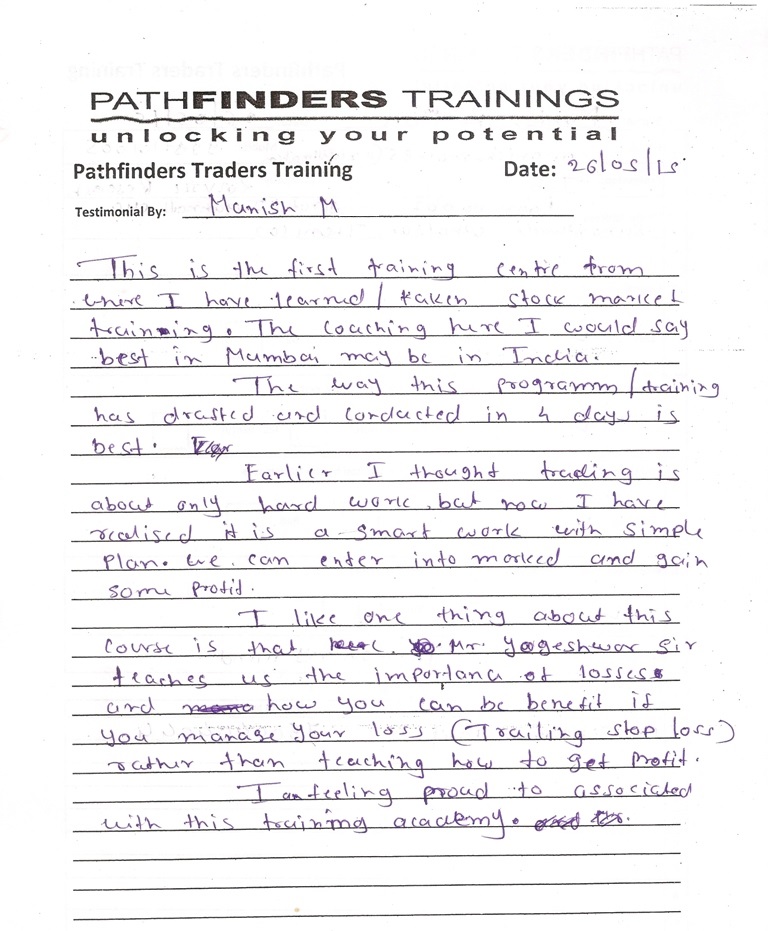 PATHFINDERS TRAININGS
unlocking your potential
Pathfinders Traders Training Date: 26/05/15
Testimonial By: Manish M
This is the first training centre from
where I have learned / taken stock market
training. The coaching here I would say
best in Mumbai may be in India.
The way this programm / training
has drafted and conducted in 4 days is
best.
Earlier I thought trading is
about only hard work, but now I have
realised it is a smart work with simple
plan. we can enter into marked and gain
some profit.
I like one thing about this
course is that Mr. Yogeshwar Sir
teaches us the importanc of losses
and how you can be benefit if
you manage your loss (Trailing stop loss)
rather than teaching how to get profit.
I am feeling proud to associated
with this training academy.